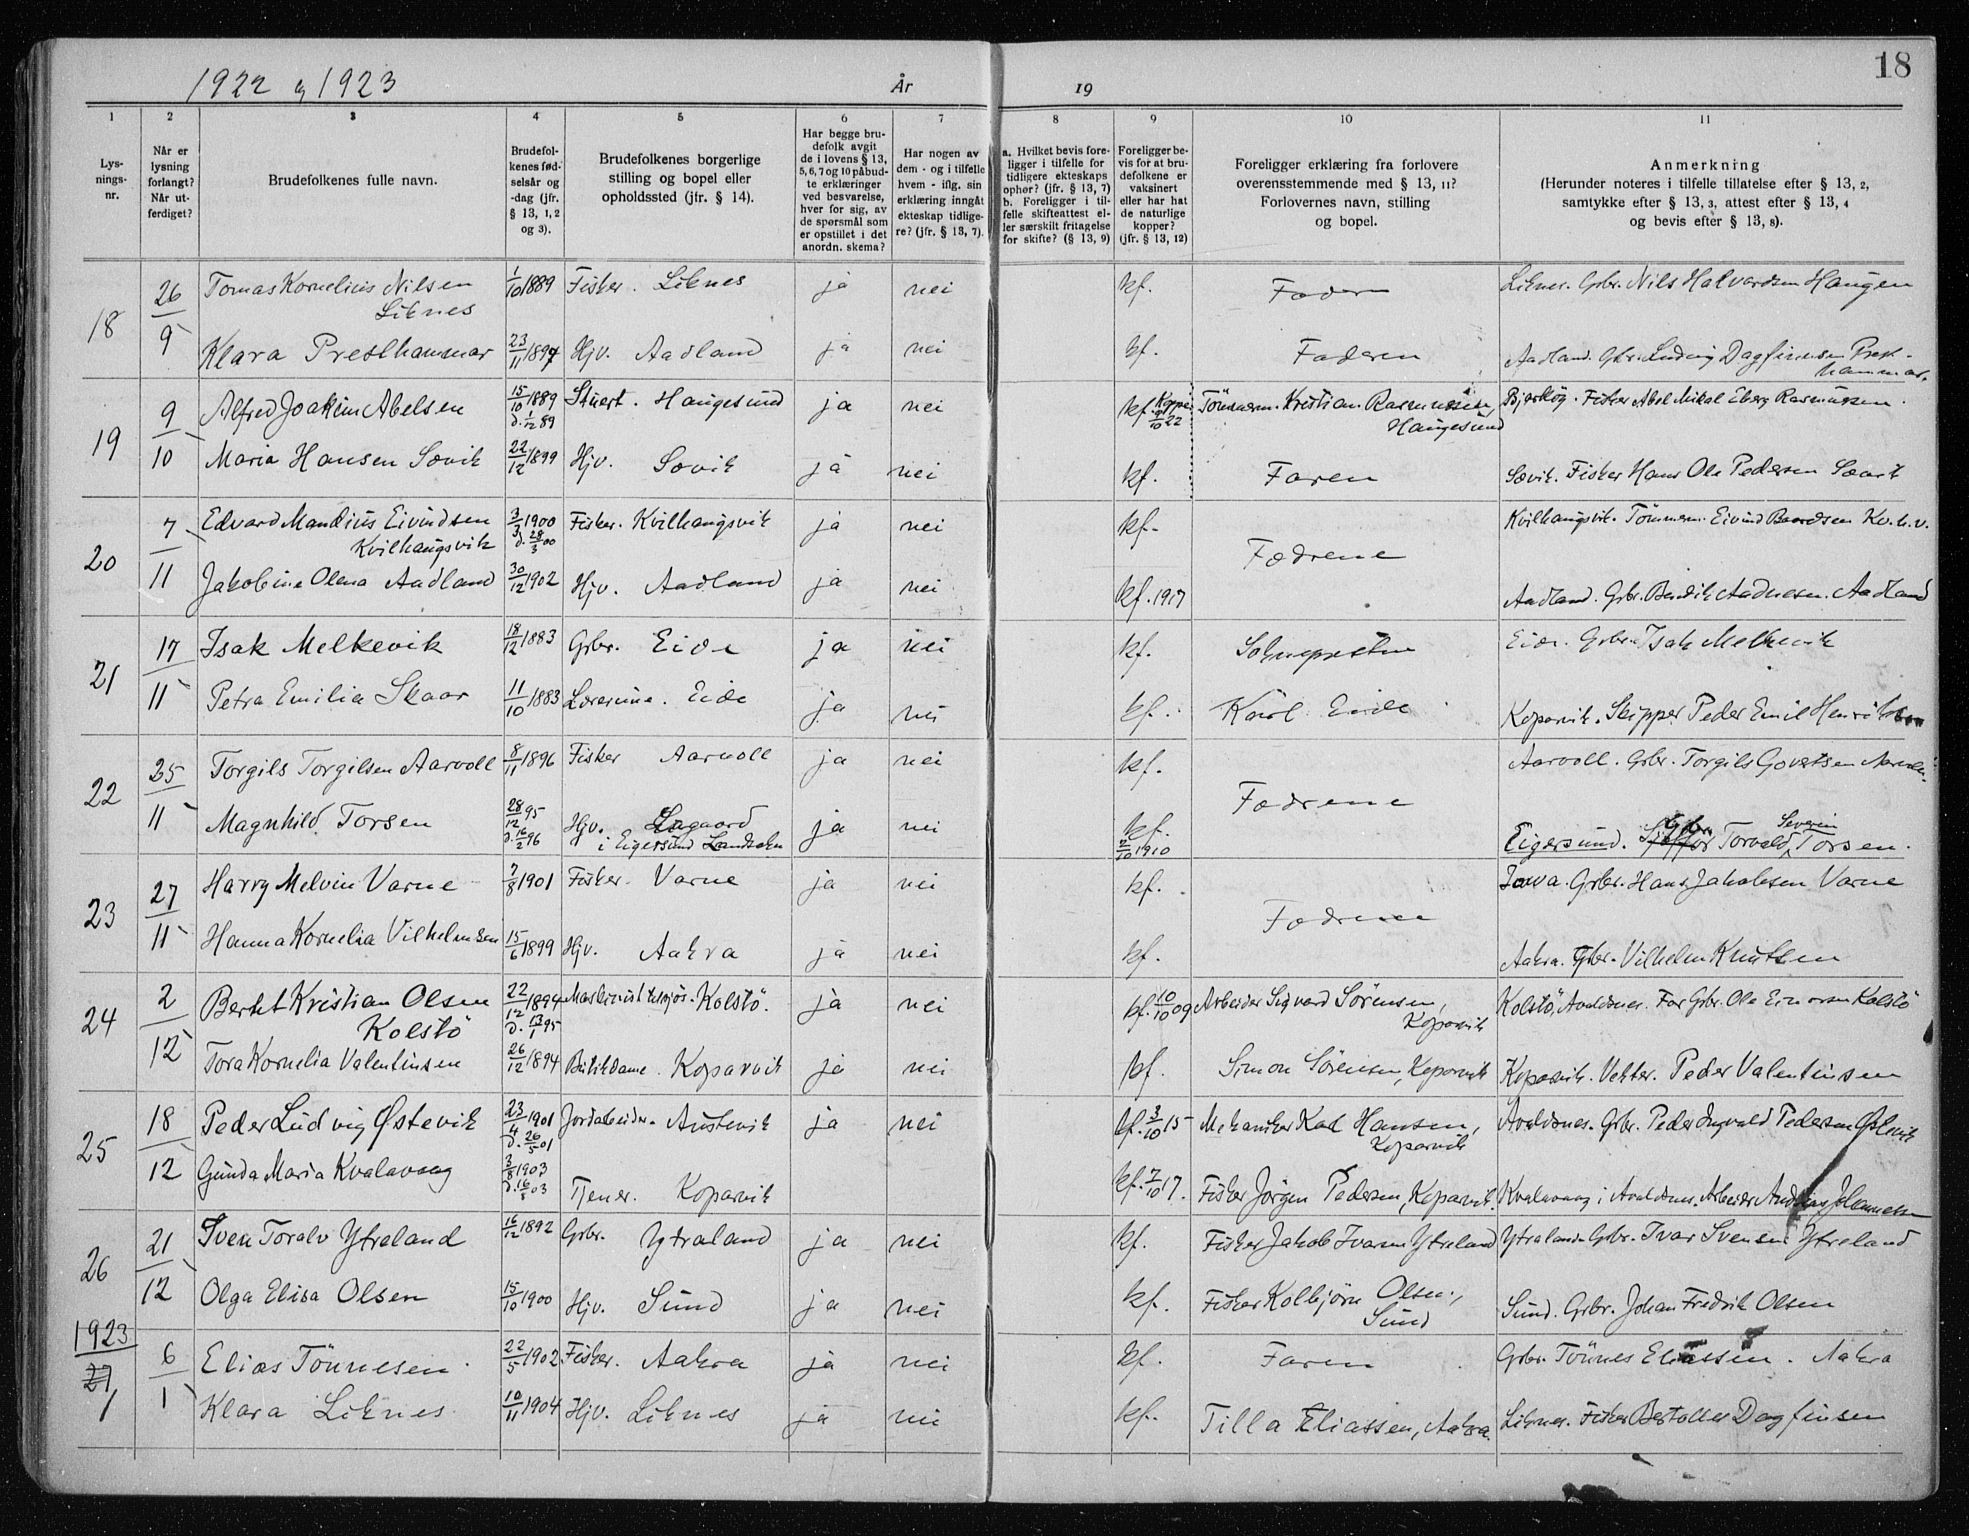 1922 og 1923
År
19
18
1 2 3 4 5 6 7 8 9 10 11
Lys-
nings-
nr.
Når er
lysning
forlangt?
Når ut-
ferdiget?
Brudefolkenes fulle navn.
Brudefol-
kenes fød-
selsår og
-dag (jfr.
§ 13, 1, 2
og 3).
Brudefolkenes borgerlige
stilling og bopel eller
opholdssted (jfr. § 14).
Har begge bru-
defolk avgit
de i lovens § 13,
5, 6, 7 og 10 påbud-
te erklæringer
ved besvarelse,
hver for sig, av
de spørsmål som
er opstillet i det
anordn. skema?
Har nogen av
dem - og i tilfelle
hvem - iflg. sin
erklæring inngått
ekteskap tidlige-
re? (jfr. § 13, 7).
a. Hvilket bevis fore-
ligger i tilfelle for
tidligere ekteskaps
ophør? (jfr. § 13, 7)
b. Foreligger i til-
felle skifteattest el-
ler særskilt fritagelse
for skifte? (§ 13, 9)
Foreligger be-
vis for at bru-
defolkene er
vaksinert
eller har hat
de naturlige
kopper?
(jfr. § 13, 12)
Foreligger erklæring fra forlovere
overensstemmende med § 13, 11?
Forlovernes navn, stilling
og bopel.
Anmerkning
(Herunder noteres i tilfelle tillatelse efter § 13, 2,
samtykke efter § 13, 3, attest efter § 13, 4
og bevis efter § 13, 8).
18 26/9 Tomas Kornelius Nilsen 1/10 1889 Fisker. Liknes ja nei kf. Faderen Liknes. Grbr. Nils Halvardsen Haugen
Liknes
Klara Presthammar 23/11 1897 Hjv. Aadland ja nei kf. Faderen Aadland. Gbr. Ludvig Dagfinnsen Prest-
hammar.
19 9/10 Alfred Joakim Abelsen 15/10 1889 Stuert. Haugesund ja nei kf. Tömmerm. Kristian Rasmussen, Fisker Abel Mikal Eberg Rasmussen.
d. 1/12 89 Haugesund
Maria Hansen Sævik 22/12 1899 Hjv. Sævik ja nei kf. Faren Sævik. Fisker Hans Ole Pedersen Sævik
20 7/11 Edvard Mandius Eivindsen 3/3 1900 Fisker. Kvilhaugsvik ja nei kf. Fædrene Kvilhaugsvik. Tömmerm. Eivind Baardsen Kv.h.v.
Kvilhaugsvik d. 28/3 00
Jakobine Olena Aadland 30/12 1902 Hjv. Aadland ja nei kf. 1917 Aadland. Grbr. Bendik Aadnesen Aadland
21 17/11 Isak Melkevik 18/12 1883 Grbr. Eide ja nei kf. Soknepresten Eide. Grbr. Isak Melkevik
Petra Emilia Skaar 11/10 1883 Lærerinne. Eide ja nei kf. Karl Eide Kopervik. Skipper Peder Emil Henriksen
22 25/11 Torgils Torgilsen Aarvoll 8/11 1896 Fisker Aarvoll ja nei kf. Fædrene Aarvoll. Grbr. Torgils Govertsen Aarvoll.
Magnhild Torsen 28/12 95 Hjv. Lagaard ja nei kf. Eigersund. Grbr. Torvald Severin Torsen.
d. 16/2 96 i Eigersund Landsokn 2/10 1910
23 27/11 Harry Melvin Varne 7/8 1901 Fisker. Varne ja nei kf. Fædrene Grbr. Hans Jakobsen Varne
Hanna Kornelia Vilhelmsen 15/6 1899 Hjv. Aakra ja nei kf. Aakra. Grbr. Vilhelm Knutsen
24 2/12 Bertet Kristian Olsen 22/12 1894 Maskinist tilsjøs. Kolstö. ja nei kf. 10/10 09 Arbeider Sigvard Sörensen, Kolstö, Avaldsnes. Far Grbr. Ole Einarsen Kolstö
Kolstö d. 13/1 95 Kopervik
Tora Kornelia Valentinsen 26/12 1894 Butikdame. Kopervik ja nei kf. Simon Sörensen, Kopervik Kopervik. Vekter. Peder Valentinsen
25 18/12 Peder Ludvig Østevik 23/4 1901 Jordarbeider. Austevik ja nei kf. 3/10 15 Mekaniker Karl Hansen, Avaldsnes. Grbr. Peder Ingvald Pedersen Østevik
d. 26/5 01 Kopervik
Gunda Maria Kvalavaag 3/8 1903 Tjener. Kopervik kf. 7/10 17. Fisker Jörgen Pedersen, Kopervik. Kvalavaag i Avaldsnes. Arbeider Andreas Johannesen
d. 16/8 03
26 21/12 Sven Toralv Ytreland 16/12 1892 Grbr. Ytraland ja nei kf. Fisker Jakob Ivarsen Ytreland Ytraland. Grbr. Ivar Svensen Ytreland
Olga Elisa Olsen 15/10 1900 Hjv. Sund ja nei kf. Fisker Kolbjörn Olsen, Sund. Grbr. Johan Fredrik Olsen
Sund
1923
27
1 6/1 Elias Tönnesen 22/5 1902 Fisker. Aakra ja nei kf. Faren Grbr. Tönnes Eliassen. Aakra
Klara Liknes 10/11 1904 Hjv. Liknes ja nei kf. Tilla Eliassen, Aakra. Liknes. Fisker Bertolles Dagfinsen